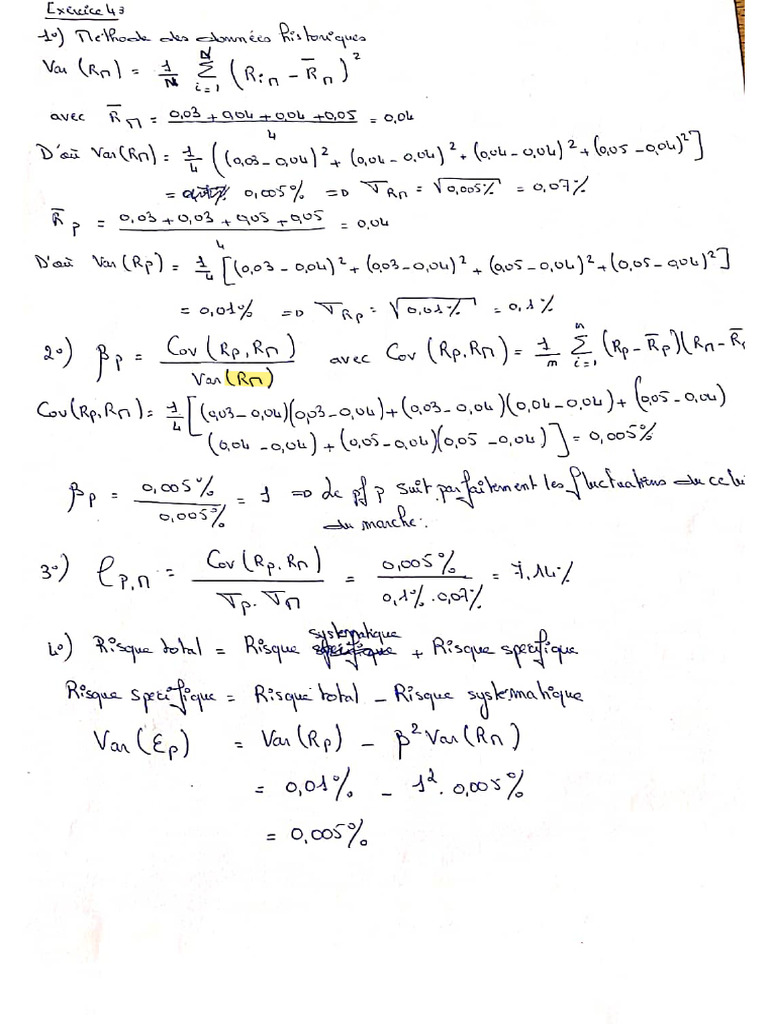 Exercice 43
1°) Méthode des données historiques
Var (RM) = 1/N Σ(i=1, N) (RiM - R̄M)²
avec R̄M = (0,03 + 0,04 + 0,04 + 0,05)/4 = 0,04
D'où Var(RM) = 1/4 ((0,03 - 0,04)² + (0,04 - 0,04)² + (0,04 - 0,04)² + (0,05 - 0,04)²]
= 0,005% => σRM = √0,005% = 0,07%
R̄p = (0,03 + 0,03 + 0,05 + 0,05)/4 = 0,04
D'où Var (Rp) = 1/4 [(0,03 - 0,04)² + (0,03 - 0,04)² + (0,05 - 0,04)² + (0,05 - 0,04)²]
= 0,01% => σRp = √0,01% = 0,1%
2°) βp = Cov (Rp, RM)/Var (RM) avec Cov (Rp, RM) = 1/n Σ(i=1, n) (Rp - R̄p)(RM - R̄
Cov (Rp, RM) = 1/4 [(0,03 - 0,04)(0,03 - 0,04) + (0,03 - 0,04)(0,04 - 0,04) + (0,05 - 0,04)
(0,04 - 0,04) + (0,05 - 0,04)(0,05 - 0,04)] = 0,005%
βp = 0,005%/0,005% = 1 => le pf p suit parfaitement les fluctuations du celui
du marché.
3°) ρp,M = Cov (Rp, RM)/(σp . σM) = 0,005%/(0,1% . 0,07%) = 7,14%
4°) Risque total = Risque systematique + Risque spécifique
Risque spécifique = Risque total - Risque systematique
Var (εp) = Var (Rp) - β² Var (RM)
= 0,01% - 1² . 0,005%
= 0,005%